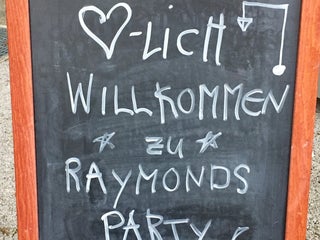 ♡-LICH
WILLKOMMEN
☆ ZU ☆
RAYMONDS
PARTY